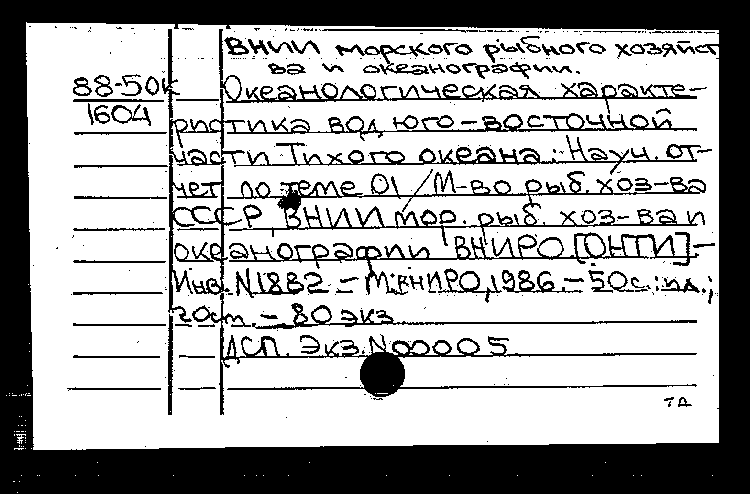 ВНИИ морского рыбного хозяйст
ва и океанографии.
88-50к
1604
Океанологическая характе-
ристика вод юго-восточной
части Тихого океана: Науч. от-
чет по теме 01 / М-во рыб. хоз-ва
СССР, ВНИИ мор. рыб. хоз-ва и
океанографии ВНИРО [ОНТИ].-
Инв. N 1882 - М: ВНИРО, 1986. - 50с.: ил.;
20см. - 80 экз
ДСП. Экз. N 00005